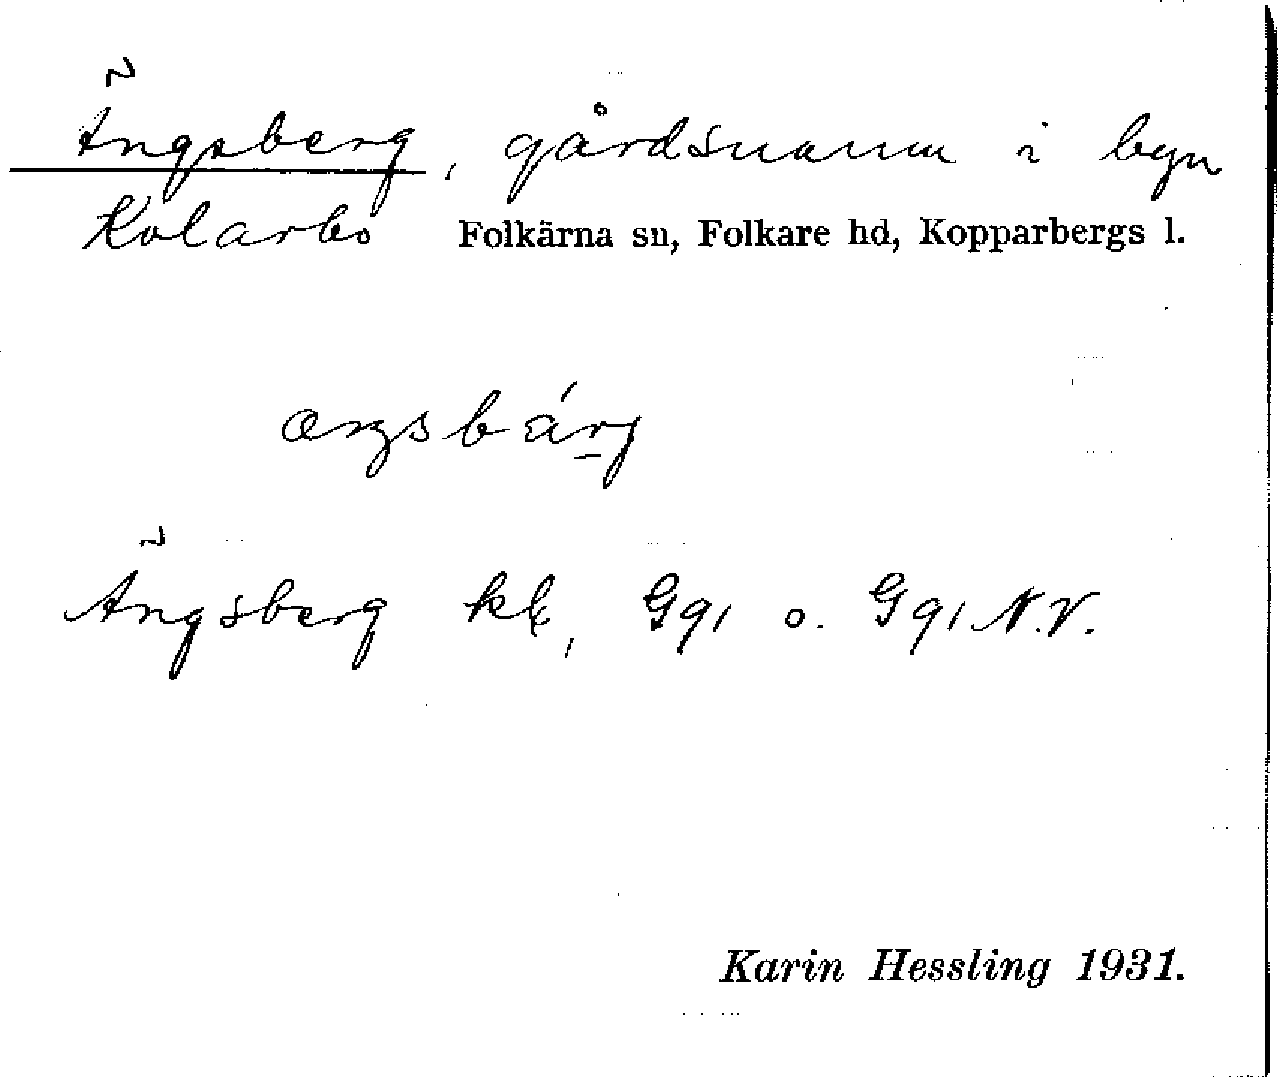 Ängsberg, gårdsnamn i byn
Kolarbo Folkärna sn, Folkare hd, Kopparbergs l.
æŋsbárj
Ängsberg kk, Gq1 o. Gq1 N.V.
Karin Hessling 1931.